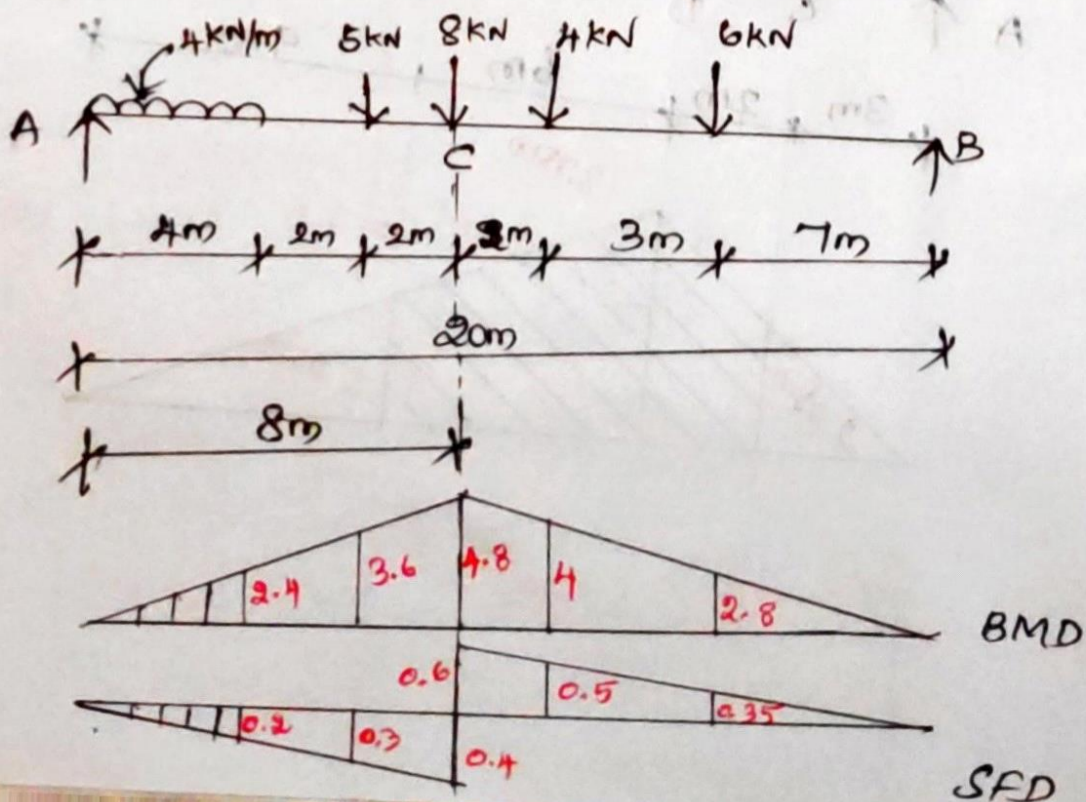 4kN/m 5kN 8kN 4kN 6kN
A B
C
4m 2m 2m 2m 3m 7m
20m
8m
2.4 3.6 4.8 4 2.8 BMD
0.6 0.5 0.35
0.2 0.3 0.4
SFD